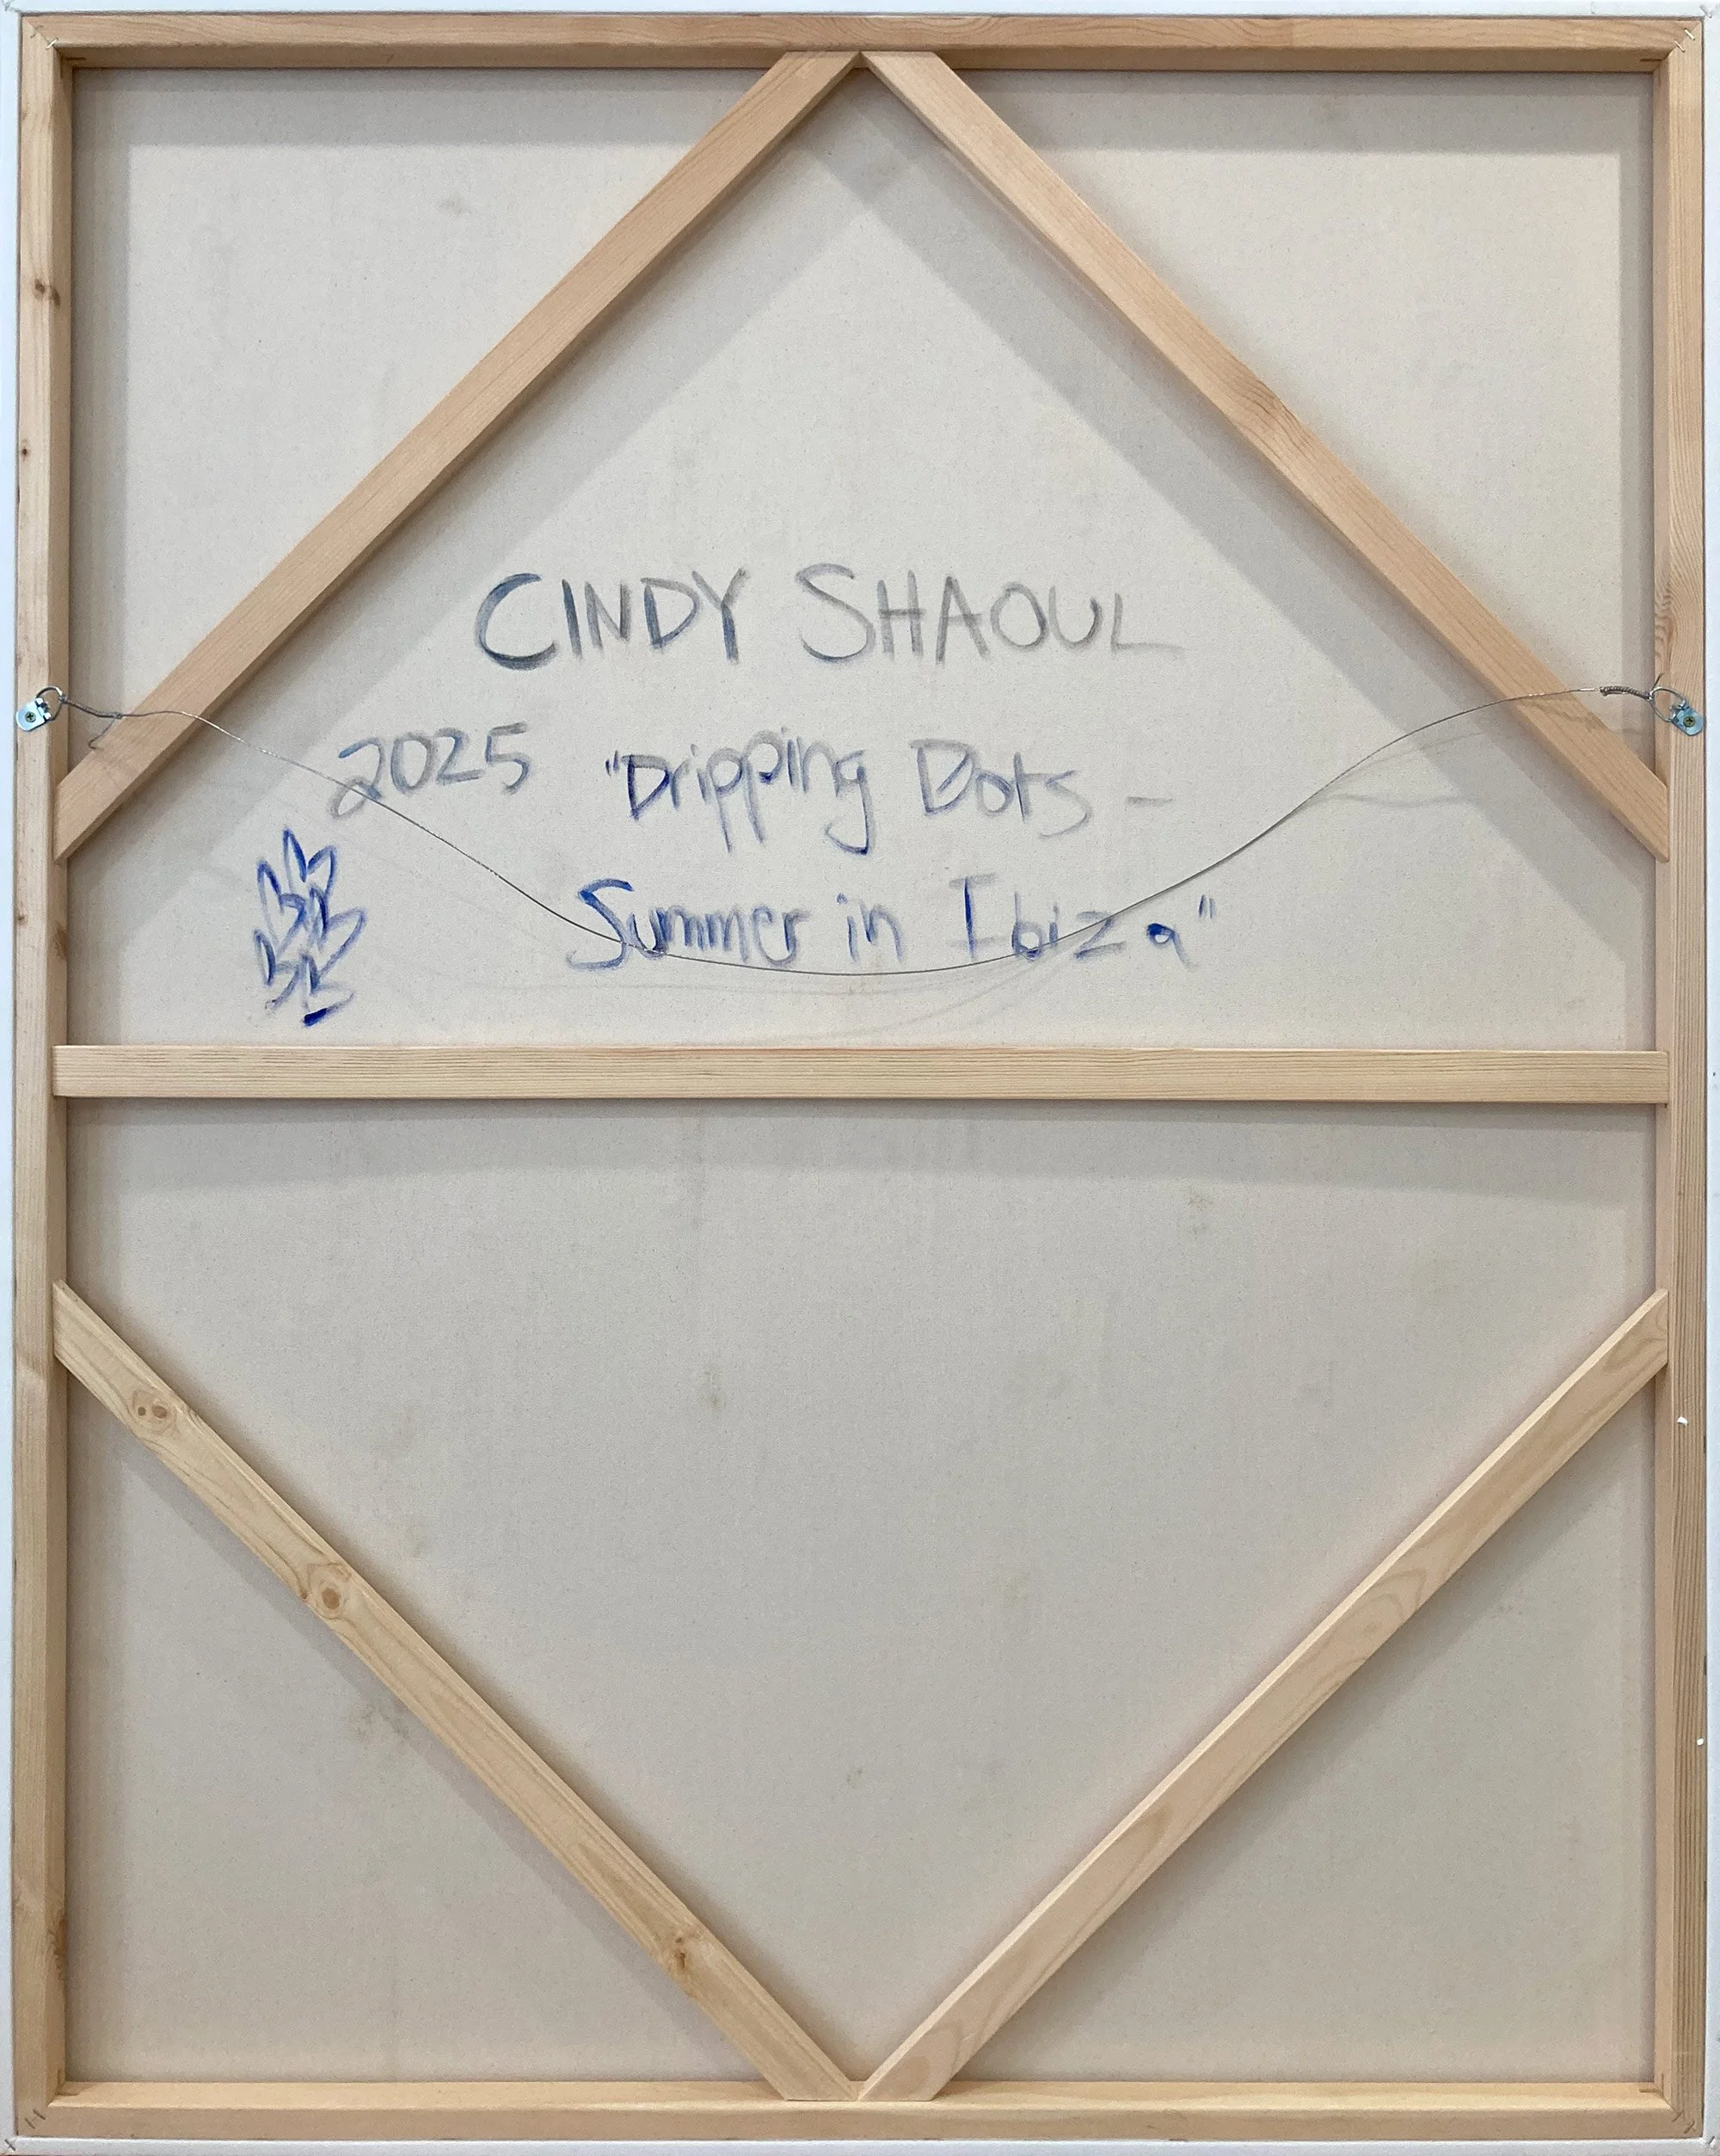 CINDY SHAOUL
2025 "Dripping Dots -
Summer in Ibiza"